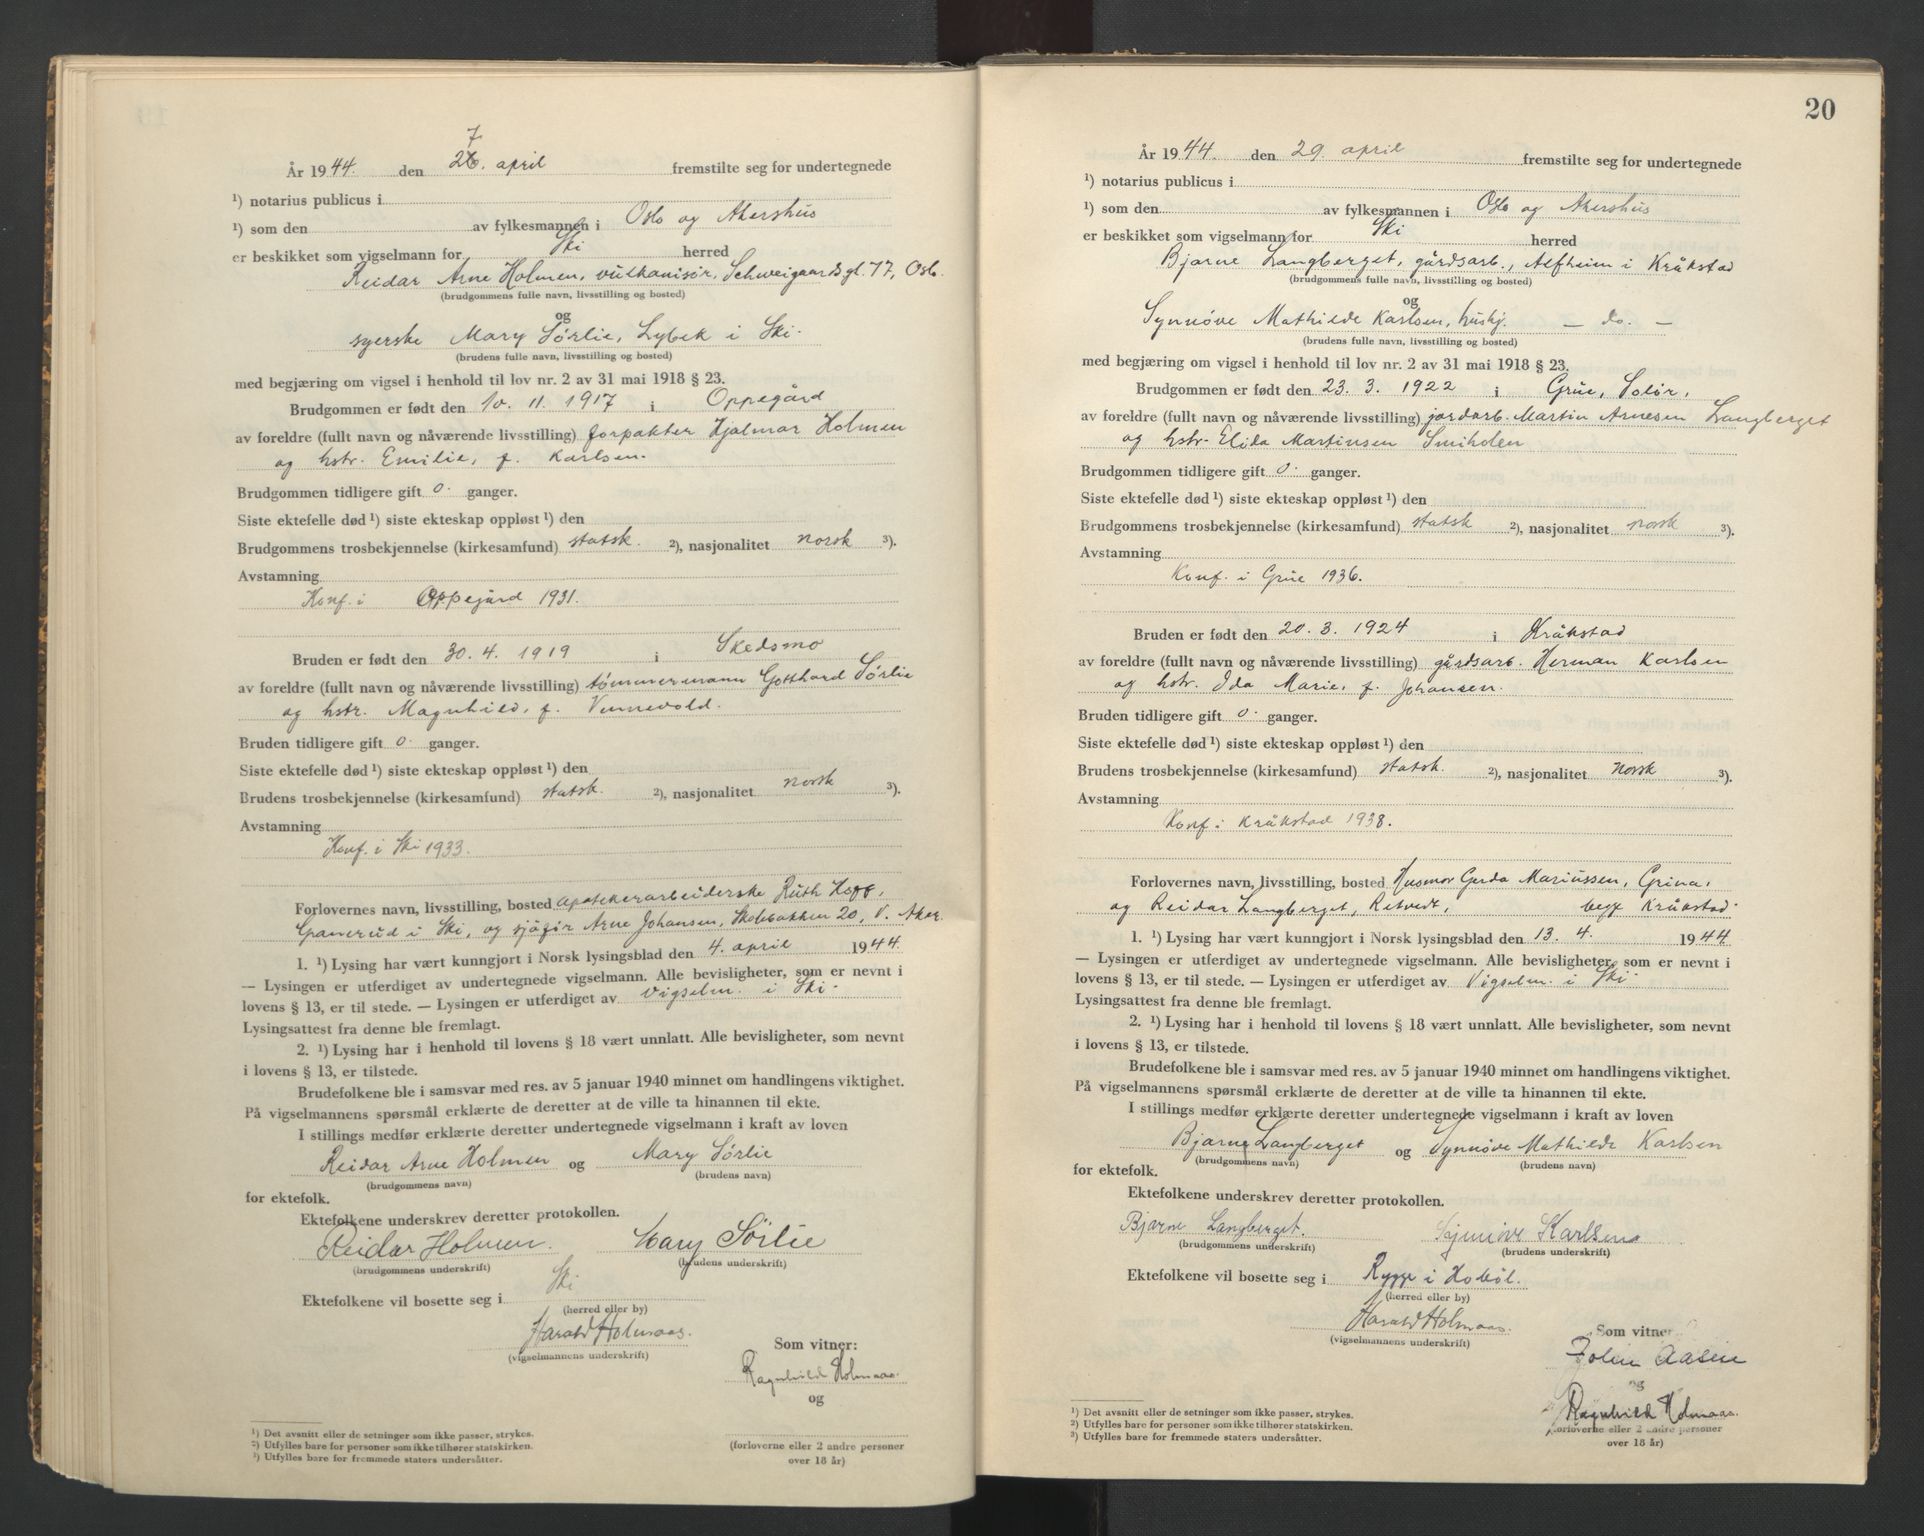 7
År 1944. den 26. april fremstilte seg for undertegnede
¹) notarius publicus i
¹) som den av fylkesmannen i Oslo og Akershus
er beskikket som vigselmann for Ski herred
Reidar Arne Holmen, vulkanisør, Schweigaardsgt. 77, Oslo.
(brudgommens fulle navn, livsstilling og bosted)
og
syerske Mary Sørlie, Lybek i Ski.
(brudens fulle navn, livsstilling og bosted)
med begjæring om vigsel i henhold til lov nr. 2 av 31 mai 1918 § 23.
Brudgommen er født den 10. 11. 1917 i Oppegård
av foreldre (fullt navn og nåværende livsstilling) forpakter Hjalmar Holmen
og hstr. Emilie, f. Karlsen.
Brudgommen tidligere gift 0. ganger.
Siste ektefelle død ¹) siste ekteskap oppløst ¹) den
Brudgommens trosbekjennelse (kirkesamfund) statsk. ²), nasjonalitet norsk ³).
Avstamning
Konf. i Oppegård 1931.
Bruden er født den 30. 4. 1919 i Skedsmo
av foreldre (fullt navn og nåværende livsstilling) tømmermann Gotthard Sørlie
og hstr. Magnhild, f. Vennevold.
Bruden tidligere gift 0. ganger.
Siste ektefelle død ¹) siste ekteskap oppløst ¹) den
Brudens trosbekjennelse (kirkesamfund) statsk. ²), nasjonalitet norsk ³).
Avstamning
Konf. i Ski 1933.
Forlovernes navn, livsstilling, bosted apotekerarbeiderske Ruth Hoff,
i Ski, og sjåfør Arne Johansen, Skolebakken 20, V. Aker.
1. ¹) Lysing har vært kunngjort i Norsk lysingsblad den 4. april 1944.
— Lysingen er utferdiget av undertegnede vigselmann. Alle bevisligheter, som er nevnt i
lovens § 13, er til stede. — Lysingen er utferdiget av Vigselm. i Ski.
Lysingsattest fra denne ble fremlagt.
2. ¹) Lysing har i henhold til lovens § 18 vært unnlatt. Alle bevisligheter, som nevnt
i lovens § 13, er tilstede.
Brudefolkene ble i samsvar med res. av 5 januar 1940 minnet om handlingens viktighet.
På vigselmannens spørsmål erklærte de deretter at de ville ta hinannen til ekte.
I stillings medfør erklærte deretter undertegnede vigselmann i kraft av loven
Reidar Arne Holmen og Mary Sørlie
(brudgommens navn) (brudens navn)
for ektefolk.
Ektefolkene underskrev deretter protokollen.
Reidar Holmen. Mary Sørlie
(brudgommens underskrift) (brudens underskrift)
Ektefolkene vil bosette seg i Ski
(herred eller by)
Harald Holmaas.
(vigselmannens underskrift)
Som vitner:
Ragnhild Holmaas.
og
(forloverne eller 2 andre personer
over 18 år)
¹) Det avsnitt eller de setninger som ikke passer, strykes.
²) Utfylles bare for personer som ikke tilhører statskirken.
³) Utfylles bare for fremmede staters undersåtter.
20
År 1944. den 29. april fremstilte seg for undertegnede
¹) notarius publicus i
¹) som den av fylkesmannen i Oslo og Akershus
er beskikket som vigselmann for Ski herred
Bjarne Langberget, gårdsarb., Alfheim i Kråkstad
(brudgommens fulle navn, livsstilling og bosted)
og
Synnøve Mathilde Karlsen, hushj. — do. —
(brudens fulle navn, livsstilling og bosted)
med begjæring om vigsel i henhold til lov nr. 2 av 31 mai 1918 § 23.
Brudgommen er født den 23. 3. 1922 i Grue, Solør,
av foreldre (fullt navn og nåværende livsstilling) jordarb. Martin Arnesen Langberget
og hstr. Elida Martinsen Smiholen
Brudgommen tidligere gift 0. ganger.
Siste ektefelle død ¹) siste ekteskap oppløst ¹) den
Brudgommens trosbekjennelse (kirkesamfund) statsk ²), nasjonalitet norsk ³).
Avstamning
Konf. i Grue 1936.
Bruden er født den 20. 3. 1924 i Kråkstad
av foreldre (fullt navn og nåværende livsstilling) gårdsarb. Herman Karlsen
og hstr. Ida Marie, f. Johansen.
Bruden tidligere gift 0. ganger.
Siste ektefelle død ¹) siste ekteskap oppløst ¹) den
Brudens trosbekjennelse (kirkesamfund) statsk. ²), nasjonalitet norsk ³).
Avstamning
Konf. i Kråkstad 1938.
Forlovernes navn, livsstilling, bosted Husmor Gerda Mariussen, Grina,
og Reidar Langberget, Retvedt, begge Kråkstad.
1. ¹) Lysing har vært kunngjort i Norsk lysingsblad den 13. 4. 1944
— Lysingen er utferdiget av undertegnede vigselmann. Alle bevisligheter, som er nevnt i
lovens § 13, er til stede. — Lysingen er utferdiget av Vigselm. i Ski.
Lysingsattest fra denne ble fremlagt.
2. ¹) Lysing har i henhold til lovens § 18 vært unnlatt. Alle bevisligheter, som nevnt
i lovens § 13, er tilstede.
Brudefolkene ble i samsvar med res. av 5 januar 1940 minnet om handlingens viktighet.
På vigselmannens spørsmål erklærte de deretter at de ville ta hinannen til ekte.
I stillings medfør erklærte deretter undertegnede vigselmann i kraft av loven
Bjarne Langberget og Synnøve Mathilde Karlsen
(brudgommens navn) (brudens navn)
for ektefolk.
Ektefolkene underskrev deretter protokollen.
Bjarne Langberget. Synnøve Karlsen
(brudgommens underskrift) (brudens underskrift)
Ektefolkene vil bosette seg i Rygge i Hobøl.
(herred eller by)
Harald Holmaas.
(vigselmannens underskrift)
Som vitner
Aasen
og
Ragnhild Holmaas.
(forloverne eller 2 andre personer
over 18 år)
¹) Det avsnitt eller de setninger som ikke passer, strykes.
²) Utfylles bare for personer som ikke tilhører statskirken.
³) Utfylles bare for fremmede staters undersåtter.